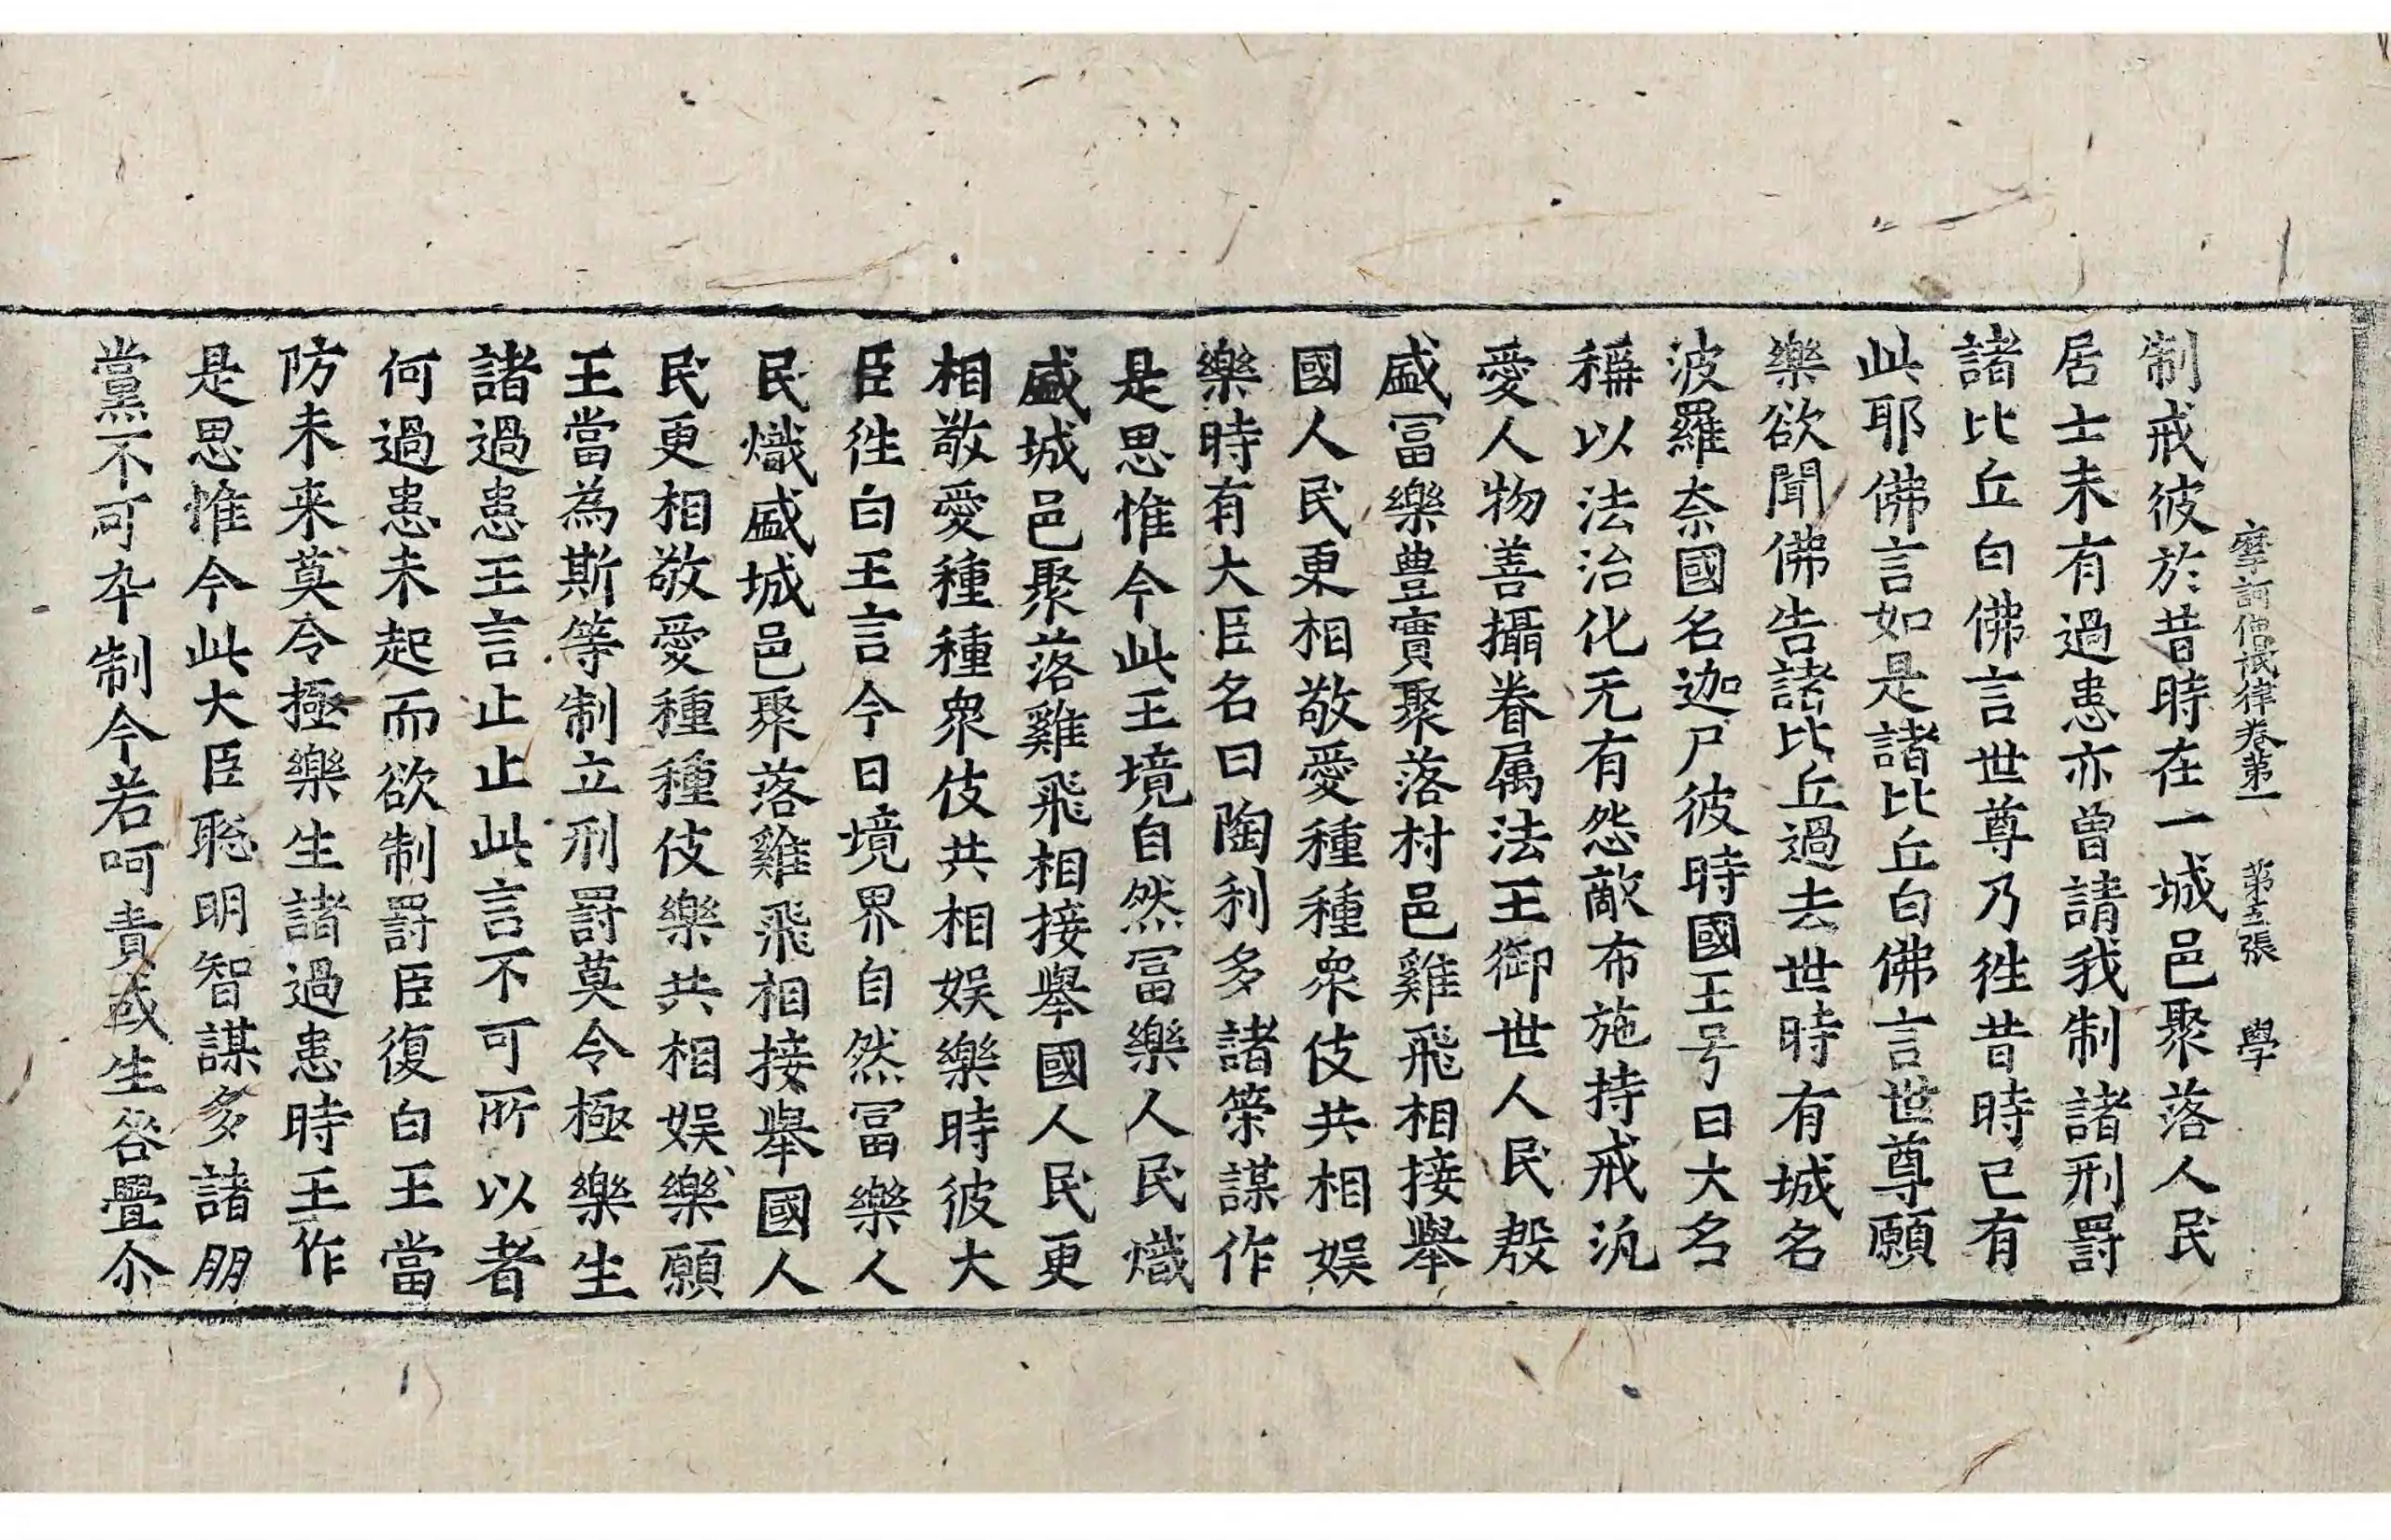 摩訶僧祇律卷第一 第五張 學
制戒彼於昔時在一城邑聚落人民
居士未有過患亦曾請我制諸刑罰
諸比丘白佛言世尊乃徃昔時已有
此耶佛言如是諸比丘白佛言世尊願
樂欲聞佛告諸比丘過去世時有城名
波羅奈國名迦尸彼時國王号曰大名
稱以法治化无有怨敵布施持戒汎
愛人物善攝眷属法王御世人民殷
盛冨樂豊實聚落村邑雞飛相接舉
國人民更相敬愛種種衆伎共相娱
樂時有大臣名曰陶利多諸策謀作
是思惟今此王境自然冨樂人民熾
盛城邑聚落雞飛相接舉國人民更
相敬愛種種衆伎共相娱樂時彼大
臣徃白王言今日境界自然冨樂人
民熾盛城邑聚落雞飛相接舉國人
民更相敬愛種種伎樂共相娱樂願
王當為斯等制立刑罰莫令極樂生
諸過患王言止止此言不可所以者
何過患未起而欲制罰臣復白王當
防未来莫令極樂生諸過患時王作
是思惟今此大臣聡明智謀多諸朋
黨不可卒制今若呵責或生咎舋尒